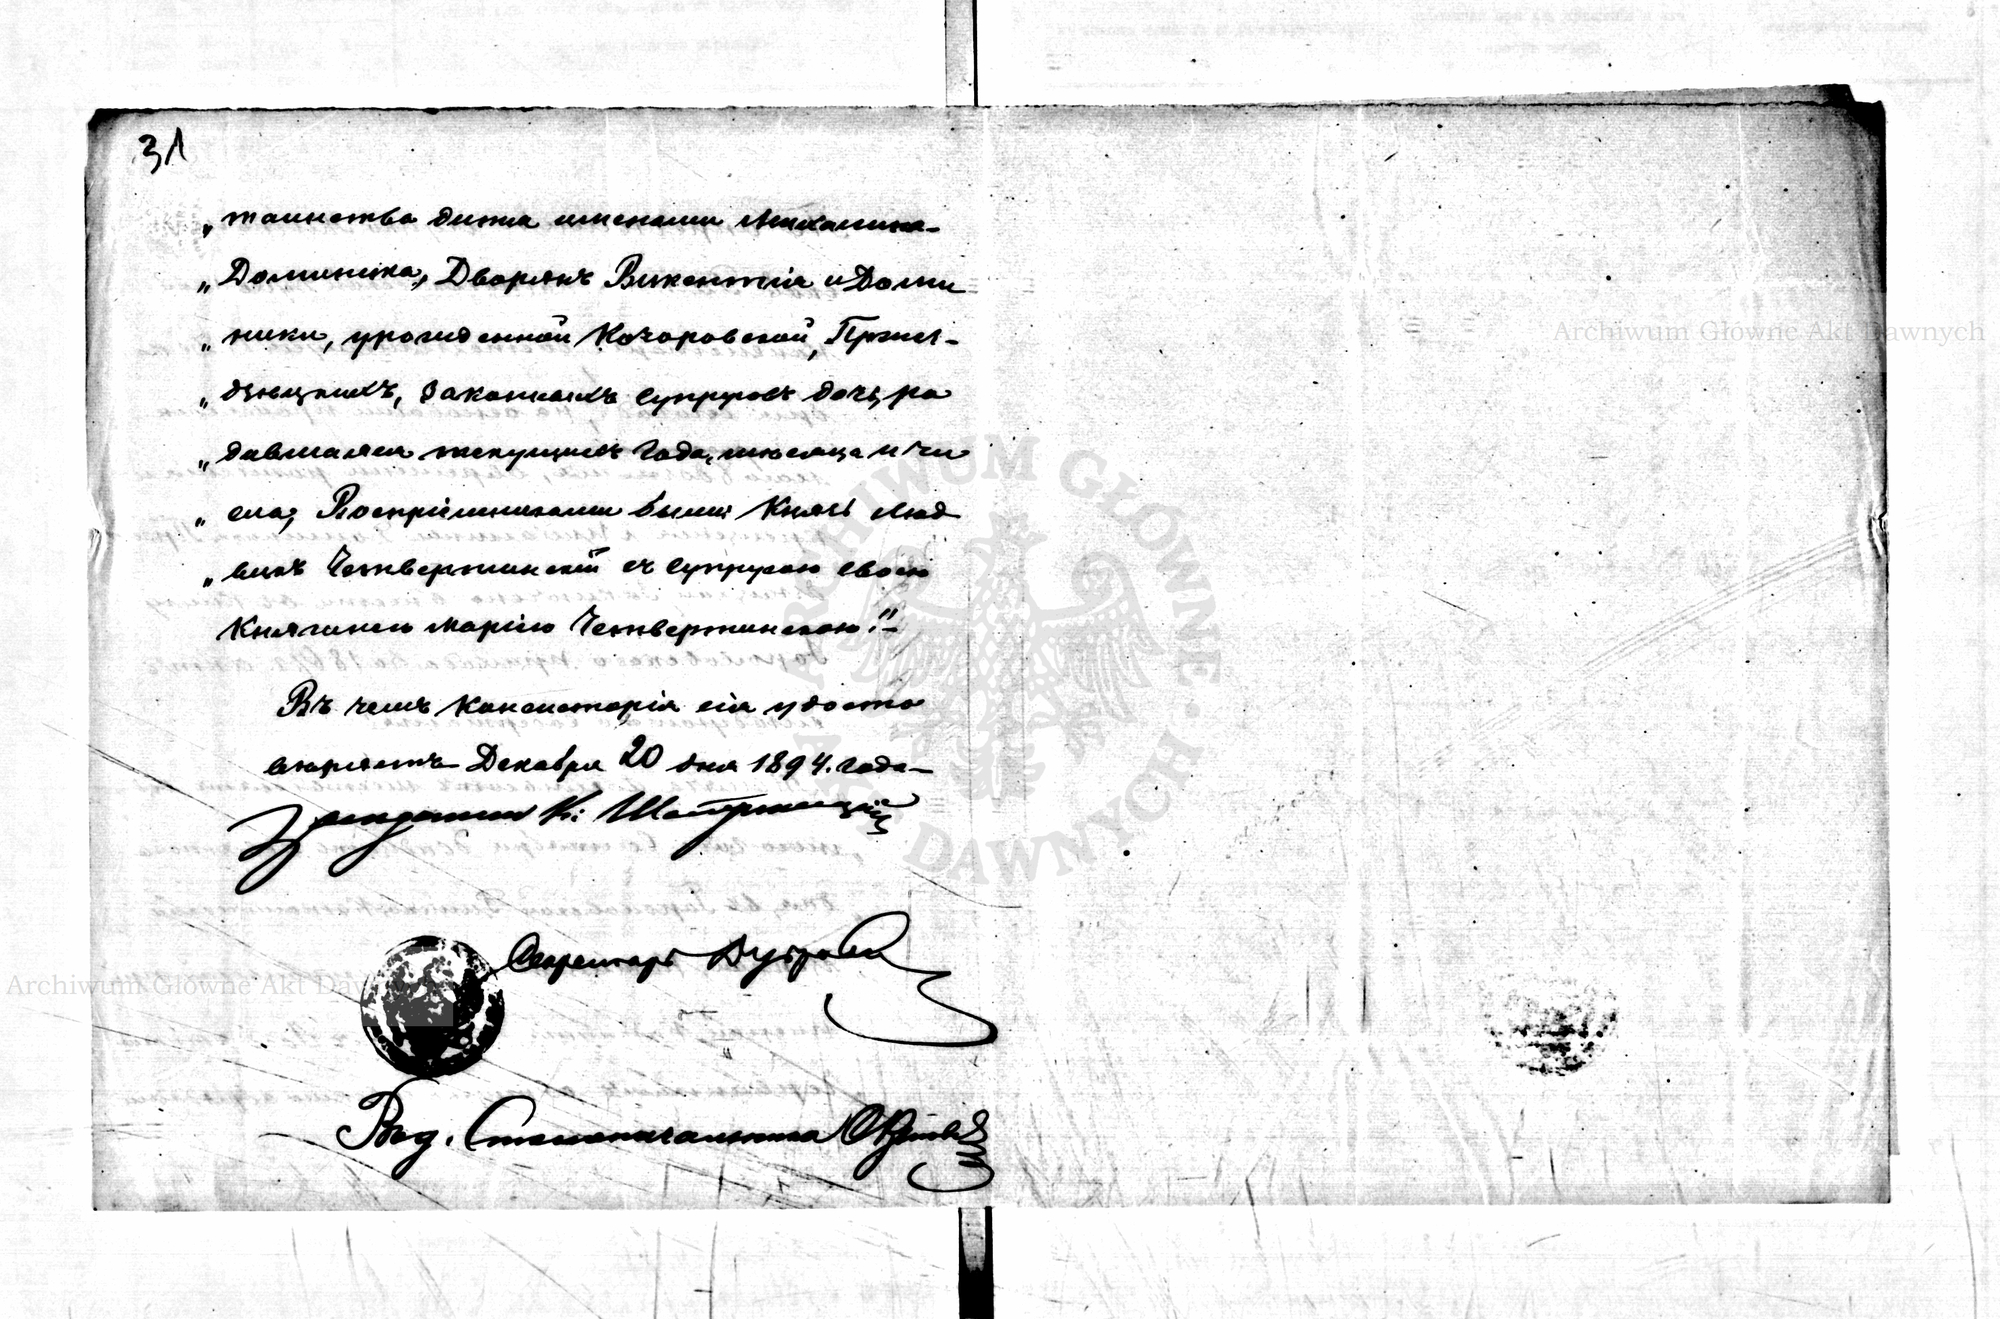 31
„ таинства дитя именами Михалина-
„ Доминика, Дворянъ Викентія и Доми
„ ники, урожденной Качаровской, Пржи-
„ дзецкихъ, законныхъ супруговъ дочь, ро
„ дившаяся текущихъ года, мѣсяца и чи
„ сла; Воспріемниками были: Князь Люд
„ викъ Четвертинскій съ супругою своею
Княгинею Маріею Четвертинскою."-
Въ чемъ Консисторія сія удосто
вѣряетъ Декабря 20 дня 1894. года-
К.
Секретарь
Столоначальника
Archiwum Główne Akt Dawnych
Archiwum Główne Akt Dawnych
ARCHIWUM GŁÓWNE AKT DAWNYCH